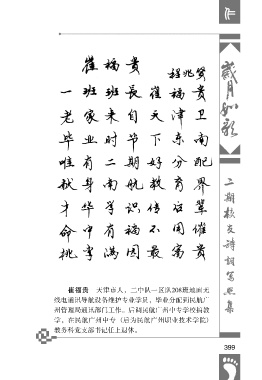 崔福贵
程兆贤
一班班長崔福贵
老家来自天津卫
毕业时节下东南
唯有二期好分配
身南航教育界
才华学识传辈
命中有福不催
桃李满园最富贵
崔福贵 天津市人，二中队一区队208班地面无
线电通讯导航设备维护专业学员，毕业分配到民航广
州管理局通讯部门工作。后调民航广州中专学校搞教
学，在民航广州中专（后为民航广州职业技术学院）
教务科党支部书记任上退休。
岁月如歌
二期校友诗词写照集
399